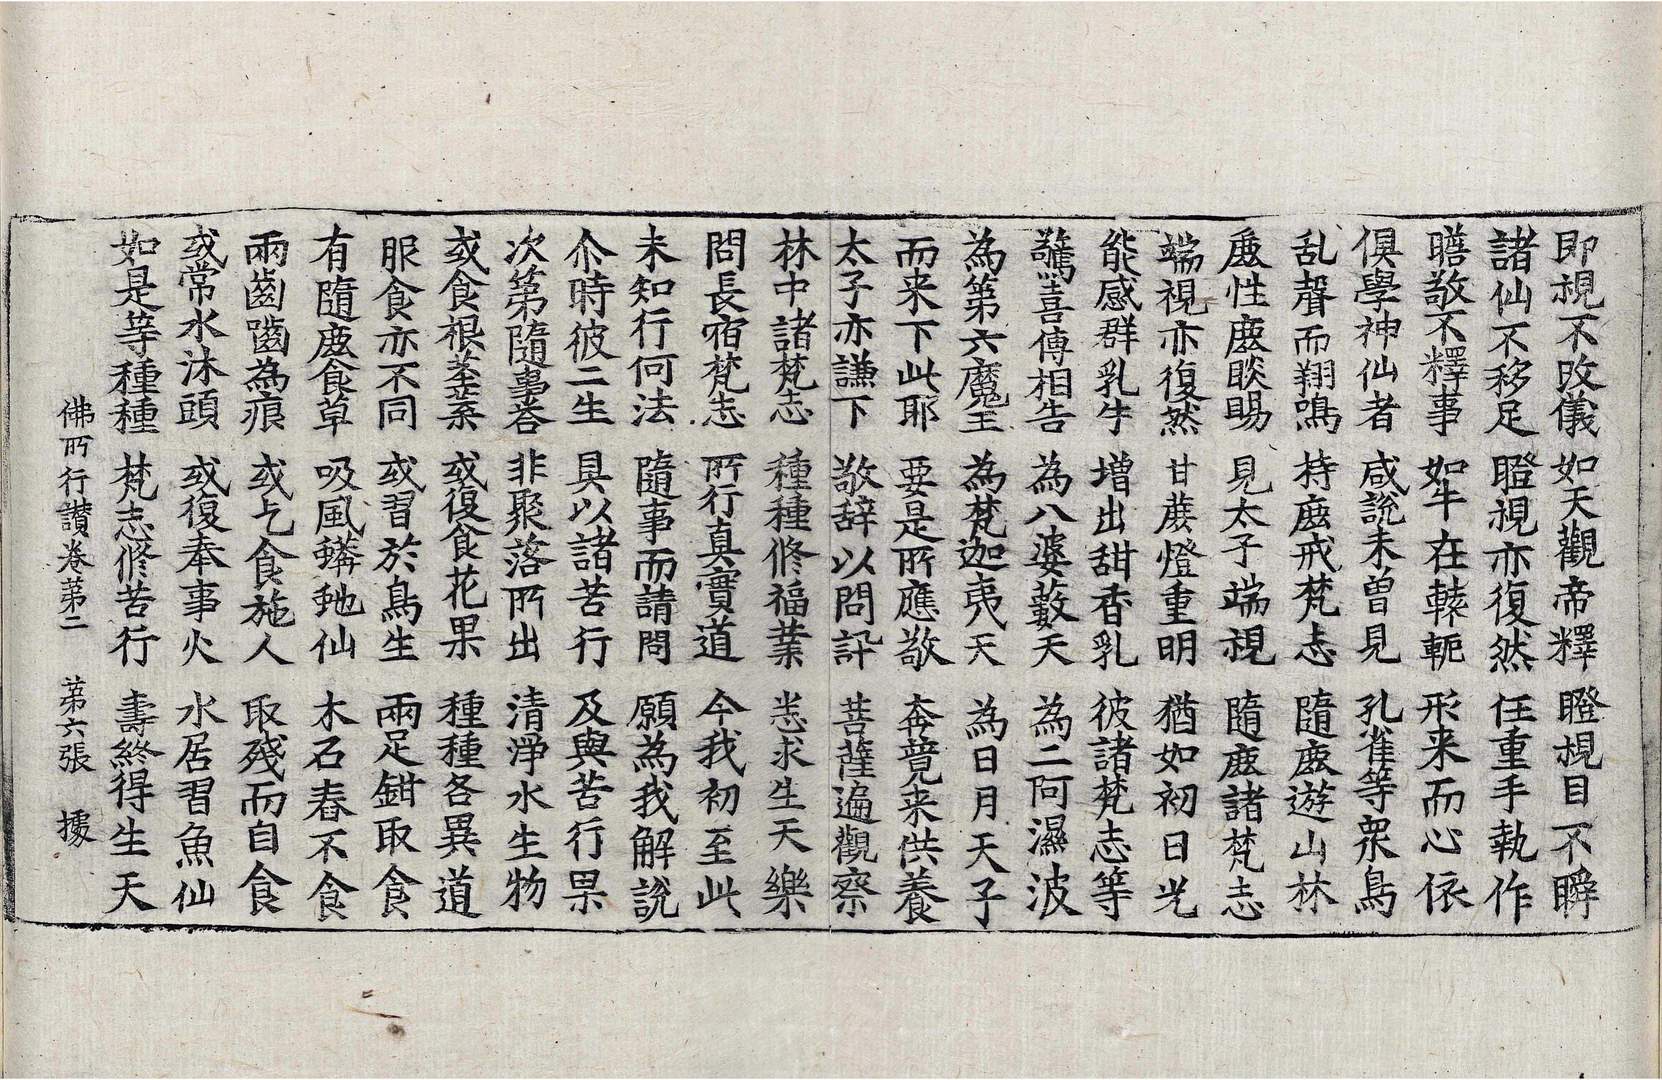 即視不改儀 如天觀帝釋 瞪視目不瞬
諸仙不移足 瞪視亦復然 任重手執作
瞻敬不釋事 如牛在轅軛 形来而心依
俱學神仙者 咸說未曾見 孔雀等衆鳥
乱聲而翔鳴 持鹿戒梵志 隨鹿遊山林
鹿性麁睒睗 見太子端視 隨鹿諸梵志
端視亦復然 甘蔗燈重明 猶如初日光
能感群乳牛 増出甜香乳 彼諸梵志等
驚喜傳相告 為八婆藪天 為二阿濕波
為第六魔王 為梵迦夷天 為日月天子
而来下此耶 要是所應敬 奔競来供養
太子亦謙下 敬辞以問訊 菩薩遍觀察
林中諸梵志 種種修福業 悉求生天樂
問長宿梵志 所行真實道 今我初至此
未知行何法 隨事而請問 願為我解說
尒時彼二生 具以諸苦行 及與苦行果
次第隨事荅 非聚落所出 清淨水生物
或食根莖葉 或復食花果 種種各異道
服食亦不同 或習於鳥生 兩足鉗取食
有隨鹿食草 吸風蟒虵仙 木石舂不食
兩齒齧為痕 或乞食施人 取殘而自食
或常水沐頭 或復奉事火 水居習魚仙
如是等種種 梵志修苦行 壽終得生天
佛所行讃卷苐二 苐六張 據